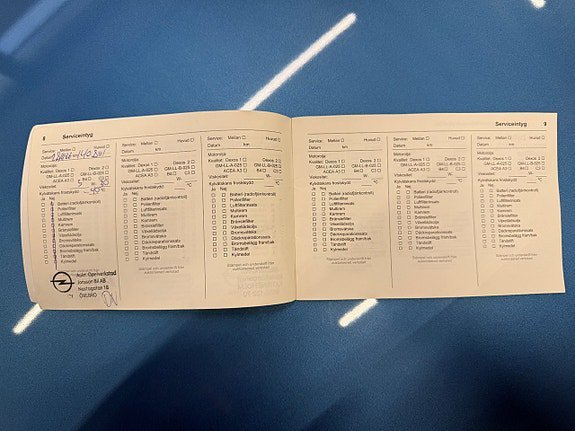 8 Serviceintyg
Service: Mellan Huvud
Datum km
Motorolja
Kvalitet: Dexos 1 Dexos 2
GM-LL-A-025 GM-LL-B-025
ACEA A3 B4 C3
Viskositet: 5 W- 30
Kylvätskans fryskydd °C
Ja Nej
Batteri (radiofjärrkontroll)
Pollenfilter
Luftfilterinsats
Multirem
Kamrem
Bränslefilter
Växellådsolja
Bromsvätska
Däckreparationssats
Bromsbelägg fram/bak
Tändstift
Kylmedel
Från Opelverkstad
Jonsson Bil AB
Nastagatan 18
ÖREBRO
Service: Mellan Huvud
Datum km
Motorolja
Kvalitet: Dexos 1 Dexos 2
GM-LL-A-025 GM-LL-B-025
ACEA A3 B4 C3
Viskositet: W-
Kylvätskans fryskydd °C
Ja Nej
Batteri (radiofjärrkontroll)
Pollenfilter
Luftfilterinsats
Multirem
Kamrem
Bränslefilter
Växellådsolja
Bromsvätska
Däckreparationssats
Bromsbelägg fram/bak
Tändstift
Kylmedel
Stämpel och underskrift från
auktoriserad verkstad
Service: Mellan Huvud
Datum km
Motorolja
Kvalitet: Dexos 1 Dexos 2
GM-LL-A-025 GM-LL-B-025
ACEA A3 B4 C3
Viskositet: W-
Kylvätskans fryskydd °C
Ja Nej
Batteri (radiofjärrkontroll)
Pollenfilter
Luftfilterinsats
Multirem
Kamrem
Bränslefilter
Växellådsolja
Bromsvätska
Däckreparationssats
Bromsbelägg fram/bak
Tändstift
Kylmedel
Stämpel och underskrift från
auktoriserad verkstad
Serviceintyg 9
Service: Mellan Huvud
Datum km
Motorolja
Kvalitet: Dexos 1 Dexos 2
GM-LL-A-025 GM-LL-B-025
ACEA A3 B4 C3
Viskositet: W-
Kylvätskans fryskydd °C
Ja Nej
Batteri (radiofjärrkontroll)
Pollenfilter
Luftfilterinsats
Multirem
Kamrem
Bränslefilter
Växellådsolja
Bromsvätska
Däckreparationssats
Bromsbelägg fram/bak
Tändstift
Kylmedel
Stämpel och underskrift från
auktoriserad verkstad
Service: Mellan Huvud
Datum km
Motorolja
Kvalitet: Dexos 1 Dexos 2
GM-LL-A-025 GM-LL-B-025
ACEA A3 B4 C3
Viskositet: W-
Kylvätskans fryskydd °C
Ja Nej
Batteri (radiofjärrkontroll)
Pollenfilter
Luftfilterinsats
Multirem
Kamrem
Bränslefilter
Växellådsolja
Bromsvätska
Däckreparationssats
Bromsbelägg fram/bak
Tändstift
Kylmedel
Stämpel och underskrift från
auktoriserad verkstad
Service: Mellan Huvud
Datum km
Motorolja
Kvalitet: Dexos 1 Dexos 2
GM-LL-A-025 GM-LL-B-025
ACEA A3 B4 C3
Viskositet: W-
Kylvätskans fryskydd °C
Ja Nej
Batteri (radiofjärrkontroll)
Pollenfilter
Luftfilterinsats
Multirem
Kamrem
Bränslefilter
Växellådsolja
Bromsvätska
Däckreparationssats
Bromsbelägg fram/bak
Tändstift
Kylmedel
Stämpel och underskrift från
auktoriserad verkstad